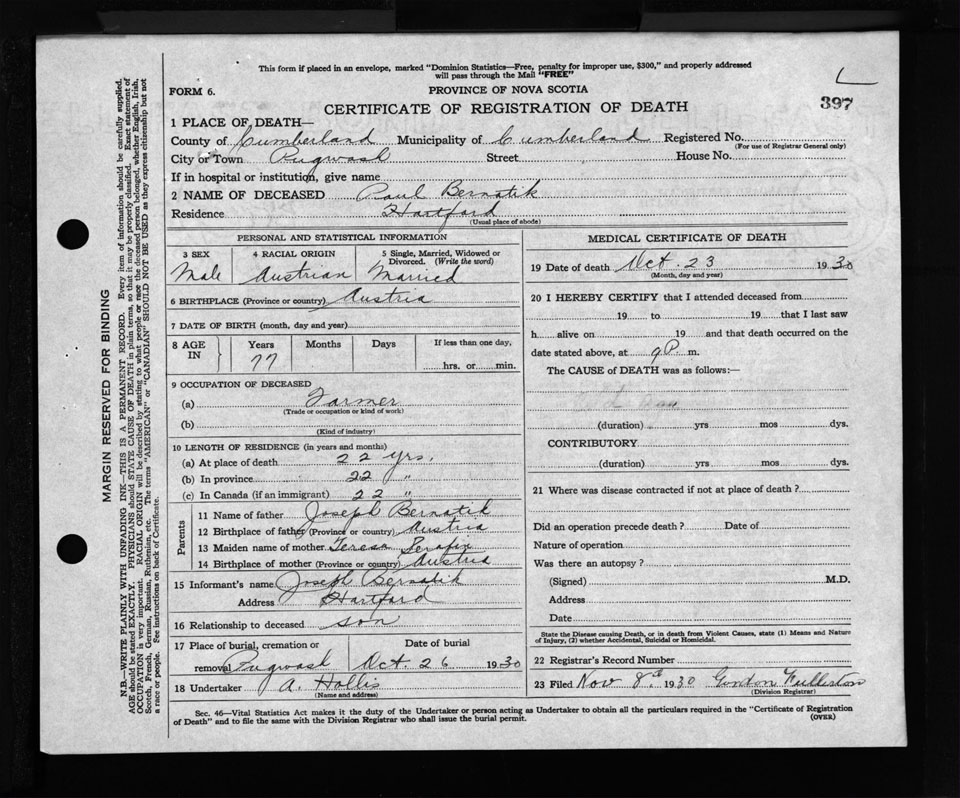 This form if placed in an envelope, marked "Dominion Statistics—Free, penalty for improper use, $300," and properly addressed
will pass through the Mail "FREE"
FORM 6.
PROVINCE OF NOVA SCOTIA
CERTIFICATE OF REGISTRATION OF DEATH
397
1 PLACE OF DEATH—
County of Cumberland Municipality of Cumberland Registered No.
(For use of Registrar General only)
City or Town Pugwash Street House No.
If in hospital or institution, give name
2 NAME OF DECEASED Paul Bernatik
Residence Hartford
(Usual place of abode)
PERSONAL AND STATISTICAL INFORMATION
3 SEX 4 RACIAL ORIGIN 5 Single, Married, Widowed or
Divorced. (Write the word)
Male Austrian Married
6 BIRTHPLACE (Province or country) Austria
7 DATE OF BIRTH (month, day and year)
8 AGE IN Years Months Days If less than one day,
77 hrs. or min.
9 OCCUPATION OF DECEASED
(a) Farmer
(Trade or occupation or kind of work)
(b)
(Kind of industry)
10 LENGTH OF RESIDENCE (in years and months)
(a) At place of death 22 yrs.
(b) In province 22 "
(c) In Canada (if an immigrant) 22 "
Parents
11 Name of father Joseph Bernatik
12 Birthplace of father (Province or country) Austria
13 Maiden name of mother Teresa Serafin
14 Birthplace of mother (Province or country) Austria
15 Informant's name Joseph Bernatik
Address Hartford
16 Relationship to deceased son
17 Place of burial, cremation or Date of burial
removal Pugwash Oct. 26 1930
18 Undertaker A. Hollis
(Name and address)
MEDICAL CERTIFICATE OF DEATH
19 Date of death Oct. 23 1930
(Month, day and year)
20 I HEREBY CERTIFY that I attended deceased from
19 to 19 that I last saw
h alive on 19 and that death occurred on the
date stated above, at 9 P. m.
The CAUSE of DEATH was as follows:—
(duration) yrs mos dys.
CONTRIBUTORY
(duration) yrs mos dys.
21 Where was disease contracted if not at place of death?
Did an operation precede death? Date of
Nature of operation
Was there an autopsy?
(Signed) M.D.
Address
Date
State the Disease causing Death, or in death from Violent Causes, state (1) Means and Nature
of Injury, (2) whether Accidental, Suicidal or Homicidal.
22 Registrar's Record Number
23 Filed Nov 8th 1930 Gordon Fullerton
(Division Registrar)
Sec. 46—Vital Statistics Act makes it the duty of the Undertaker or person acting as Undertaker to obtain all the particulars required in the "Certificate of Registration
of Death" and to file the same with the Division Registrar who shall issue the burial permit.
(OVER)
MARGIN RESERVED FOR BINDING
N.B.—WRITE PLAINLY WITH UNFADING INK—THIS IS A PERMANENT RECORD. Every item of information should be carefully supplied.
AGE should be stated EXACTLY. PHYSICIANS should STATE CAUSE OF DEATH in plain terms, so that it may be properly classified. Exact statement of
OCCUPATION is very important. RACIAL ORIGIN will be described by stating to what people or race the deceased person belonged, whether English, Irish,
Scotch, French, German, Russian, Ruthenian, etc. The terms "AMERICAN" or "CANADIAN" SHOULD NOT BE USED as they express citizenship but not
a race or people. See instructions on back of Certificate.